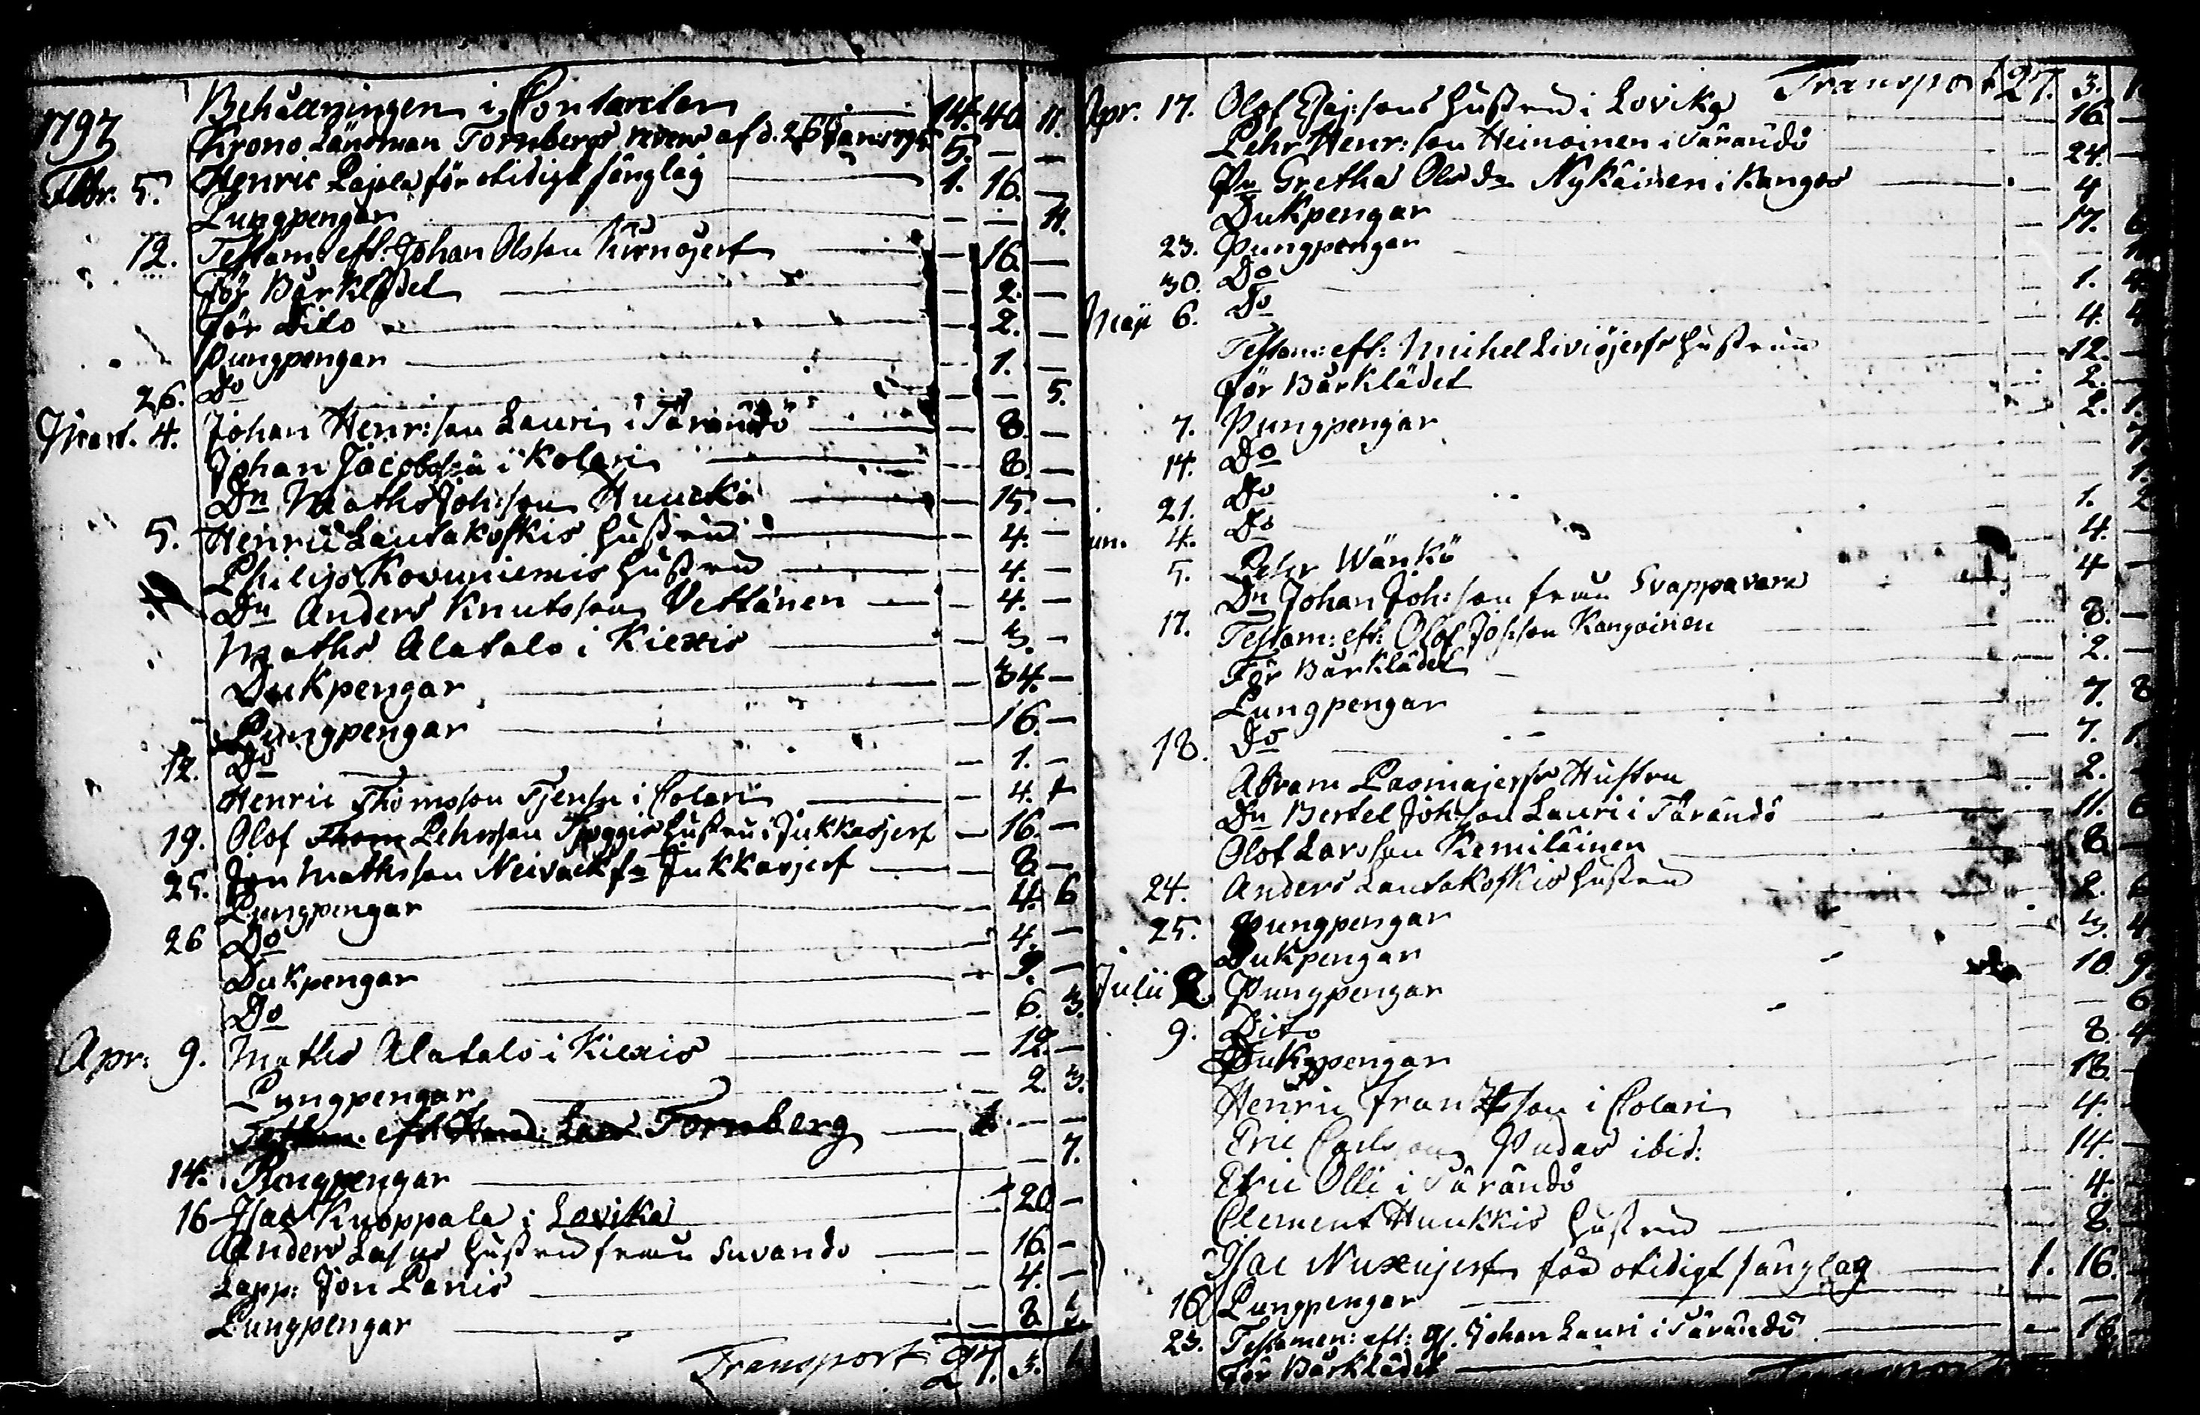 1797
Behållningen i Contanter 14. 40. 11.
Krono Länsman Tornbergs revers af d. 26 Jan: 1795 5. — —
Febr. 5. Henric Lajola för otidigt sänglag 1. 16. —
Pungpengar — — 11.
12. Testam: eft: Johan Olsson — 16. —
För Bårklädet — 2. —
För Dito — 2. —
Pungpengar — 1. —
26. Do — — 5.
Mart. 4. Johan Henr:son Lauri i Tärändö — 8. —
Johan Jacobss: i Kolari — 8. —
Dn Maths Joh:son Huuki — 15. —
5. Henric Lautakoskis hustru — 4. —
Philips Kovuniemis hustru — 4. —
Dn Anders Knutsson Vettänen — 4. —
Maths Alatalo i Kiexis — 3. —
Dukpengar — 34. —
Pungpengar — 16. —
12. Do — 1. —
Henric Thomsson i Colari — 4.
19. Olof Pehrsson hustru i Jukkasjerf — 16. —
25. Jon Mathsson Neivack fn Jukkasjerf — 8. —
Pungpengar — 4. 6
26 Do — 4. —
Dukpengar — 9. —
Do — 6. 3.
Apr: 9. Maths Alatalo i Kiexis — 12. —
Pungpengar — 2. 3.
Testam: eft: Lars Tornberg — —
14. Pungpengar — 7.
16 Isac Knoppala i Lovika 20 —
Anders hustru från Suvando — 16. —
Lapp: Jon Panis — 4. —
Pungpengar — 8.
Transport 27. 3.
Transport 27. 3.
Apr. 17. Olof Esaj:sons hustru i Lovika 16. —
Pehr Henr:son Heinoinen i Tärändö — 24. —
Pn Gretha Olsdr Nykäinen i Kangos 4
Dukpengar — 17.
23. Pungpengar
30. Do — 1.
Maji 6. Do — 4. 4
Testam: eft: Michel Liviöjerfs hustru 12. —
För Bårklädet 2. —
7. Pungpengar 2.
14. Do
21. Do 1. 2
4. Do 4. —
5. Pehr Wänkö 4 —
Dn Johan Joh:son från Svappavara 8. —
17. Testam: eft: Olof Jos:son Kangoinen
För Bårklädet 2. —
Pungpengar 7. 8
18. Do 7.
Abram Pasmajerfs Hustru 2.
Dn Bertel Joh:son Lauri i Tärändö 11. 6
Olof Larsson Kemiläinen 8
24. Anders Lautakoskis hustru 2. 6
25. Pungpengar 3. 4
Dukpengar 10. 9.
Julii 2. Pungpengar — 6
9. Dito 8. 4
Dukpengar 13.
Henric Frantsson i Colari 4.
Eric Carlsson Pudas ibid: 14.
Eric Olli i Tärändö 4.
Clement Huukkis hustru 8.
Isac Nuxujerf för otidigt sänglag 1. 16.
16 Pungpengar
23. Testamen: eft: Gl. Johan Lauri i Tärändö 16.
För Bårklädet
Transport